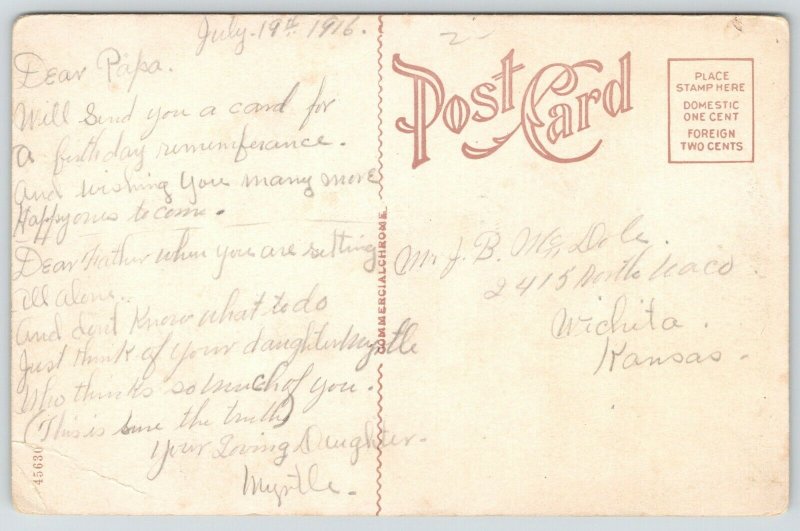 July. 19th 1916.
Dear Papa.
Will send you a card for
a birthday rememberance.
And wishing you many more
Happy ones to come.
Dear Father when you are setting
all alone..
And dont know what to do
Just think of your daughter Myrtle
Who thinks so much of you.
(This is sure the truth)
Your Loving Daughter.
Myrtle.
45630
COMMERCIALCHROME
2
Post Card
PLACE
STAMP HERE
DOMESTIC
ONE CENT
FOREIGN
TWO CENTS
Mr J. B. Mc Dole.
2415 North Waco
Wichita.
Kansas.